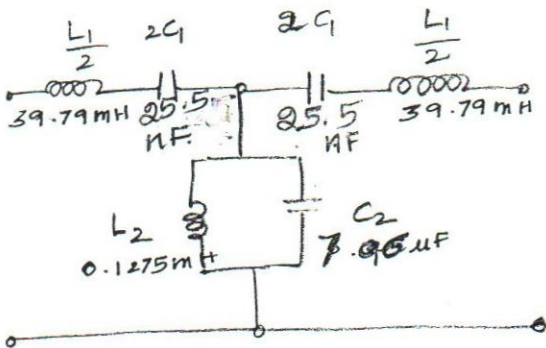 L₁/2 2C₁ 2C₁ L₁/2
39.79mH 25.5 nF. 25.5 nF 39.79mH
L₂ C₂
0.1275mH µF